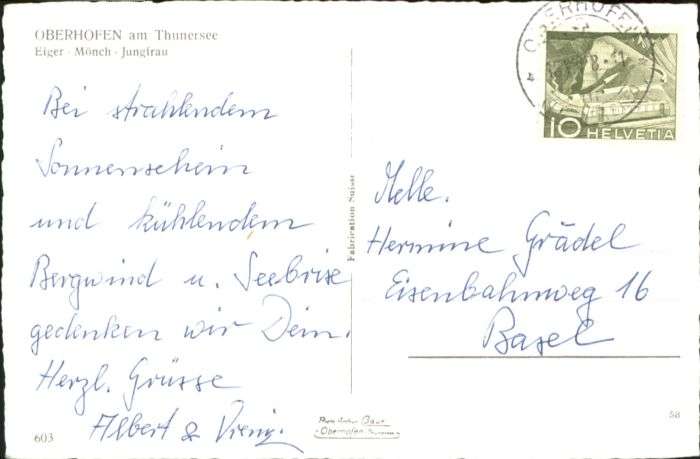 OBERHOFEN am Thunersee
Eiger · Mönch · Jungfrau
Bei strahlendem
Sonnenschein
und kühlendem
Bergwind u. Seebrise
gedenken wir Dein.
Herzl. Grüsse
Albert &
603
Fabrication Suisse
OBERHOFEN
10 HELVETIA
Melle.
Hermine Grädel
Eisenbahnweg 16
Basel
58
Oberhofen